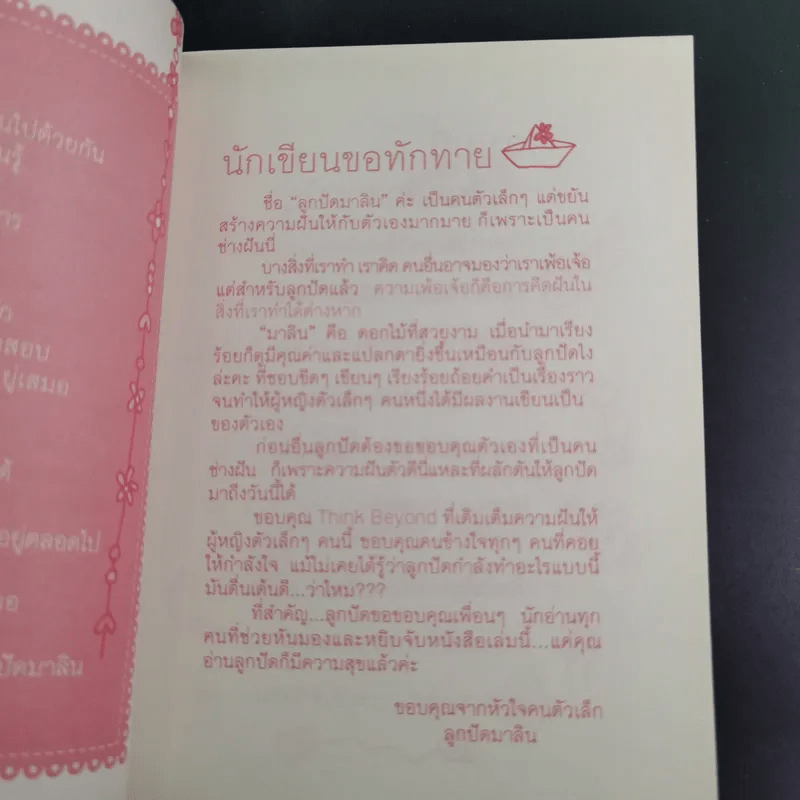 นไปด้วยกัน
นรู้
การ
สอบ
ยู่เสมอ
ด้
อยู่ตลอดไป
ปัดมาลิน
นักเขียนขอทักทาย
ชื่อ “ลูกปัดมาลิน” ค่ะ เป็นคนตัวเล็กๆ แต่ขยัน
สร้างความฝันให้กับตัวเองมากมาย ก็เพราะเป็นคน
ช่างฝันนี่
บางสิ่งที่เราทำ เราคิด คนอื่นอาจมองว่าเราเพ้อเจ้อ
แต่สำหรับลูกปัดแล้ว ความเพ้อเจ้อก็คือการคิดฝันใน
สิ่งที่เราทำได้ต่างหาก
“มาลิน” คือ ดอกไม้ที่สวยงาม เมื่อนำมาเรียง
ร้อยก็ดูมีคุณค่าและแปลกตายิ่งขึ้นเหมือนกับลูกปัดไง
ล่ะคะ ที่ชอบขีดๆ เขียนๆ เรียงร้อยถ้อยคำเป็นเรื่องราว
จนทำให้ผู้หญิงตัวเล็กๆ คนหนึ่งได้มีผลงานเขียนเป็น
ของตัวเอง
ก่อนอื่นลูกปัดต้องขอขอบคุณตัวเองที่เป็นคน
ช่างฝัน ก็เพราะความฝันตัวดีนี่แหละที่ผลักดันให้ลูกปัด
มาถึงวันนี้ได้
ขอบคุณ Think Beyond ที่เติมเต็มความฝันให้
ผู้หญิงตัวเล็กๆ คนนี้ ขอบคุณคนข้างใจทุกๆ คนที่คอย
ให้กำลังใจ แม้ไม่เคยได้รู้ว่าลูกปัดกำลังทำอะไรแบบนี้
มันตื่นเต้นดี...ว่าไหม???
ที่สำคัญ...ลูกปัดขอขอบคุณเพื่อนๆ นักอ่านทุก
คนที่ช่วยหันมองและหยิบจับหนังสือเล่มนี้...แค่คุณ
อ่านลูกปัดก็มีความสุขแล้วค่ะ
ขอบคุณจากหัวใจคนตัวเล็ก
ลูกปัดมาลิน